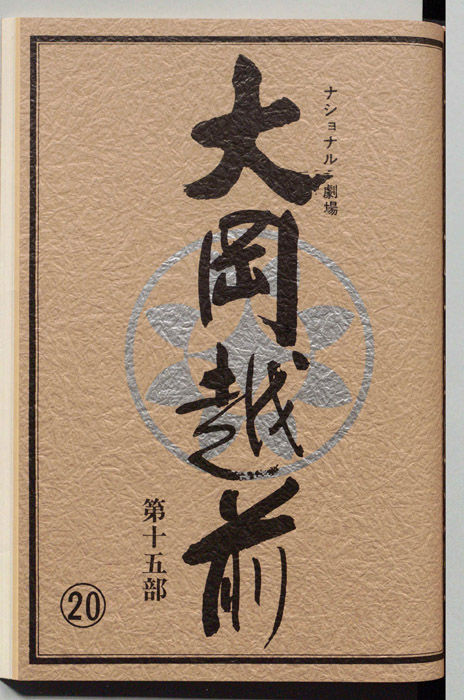 ナショナル劇場
大岡越前
第十五部
20